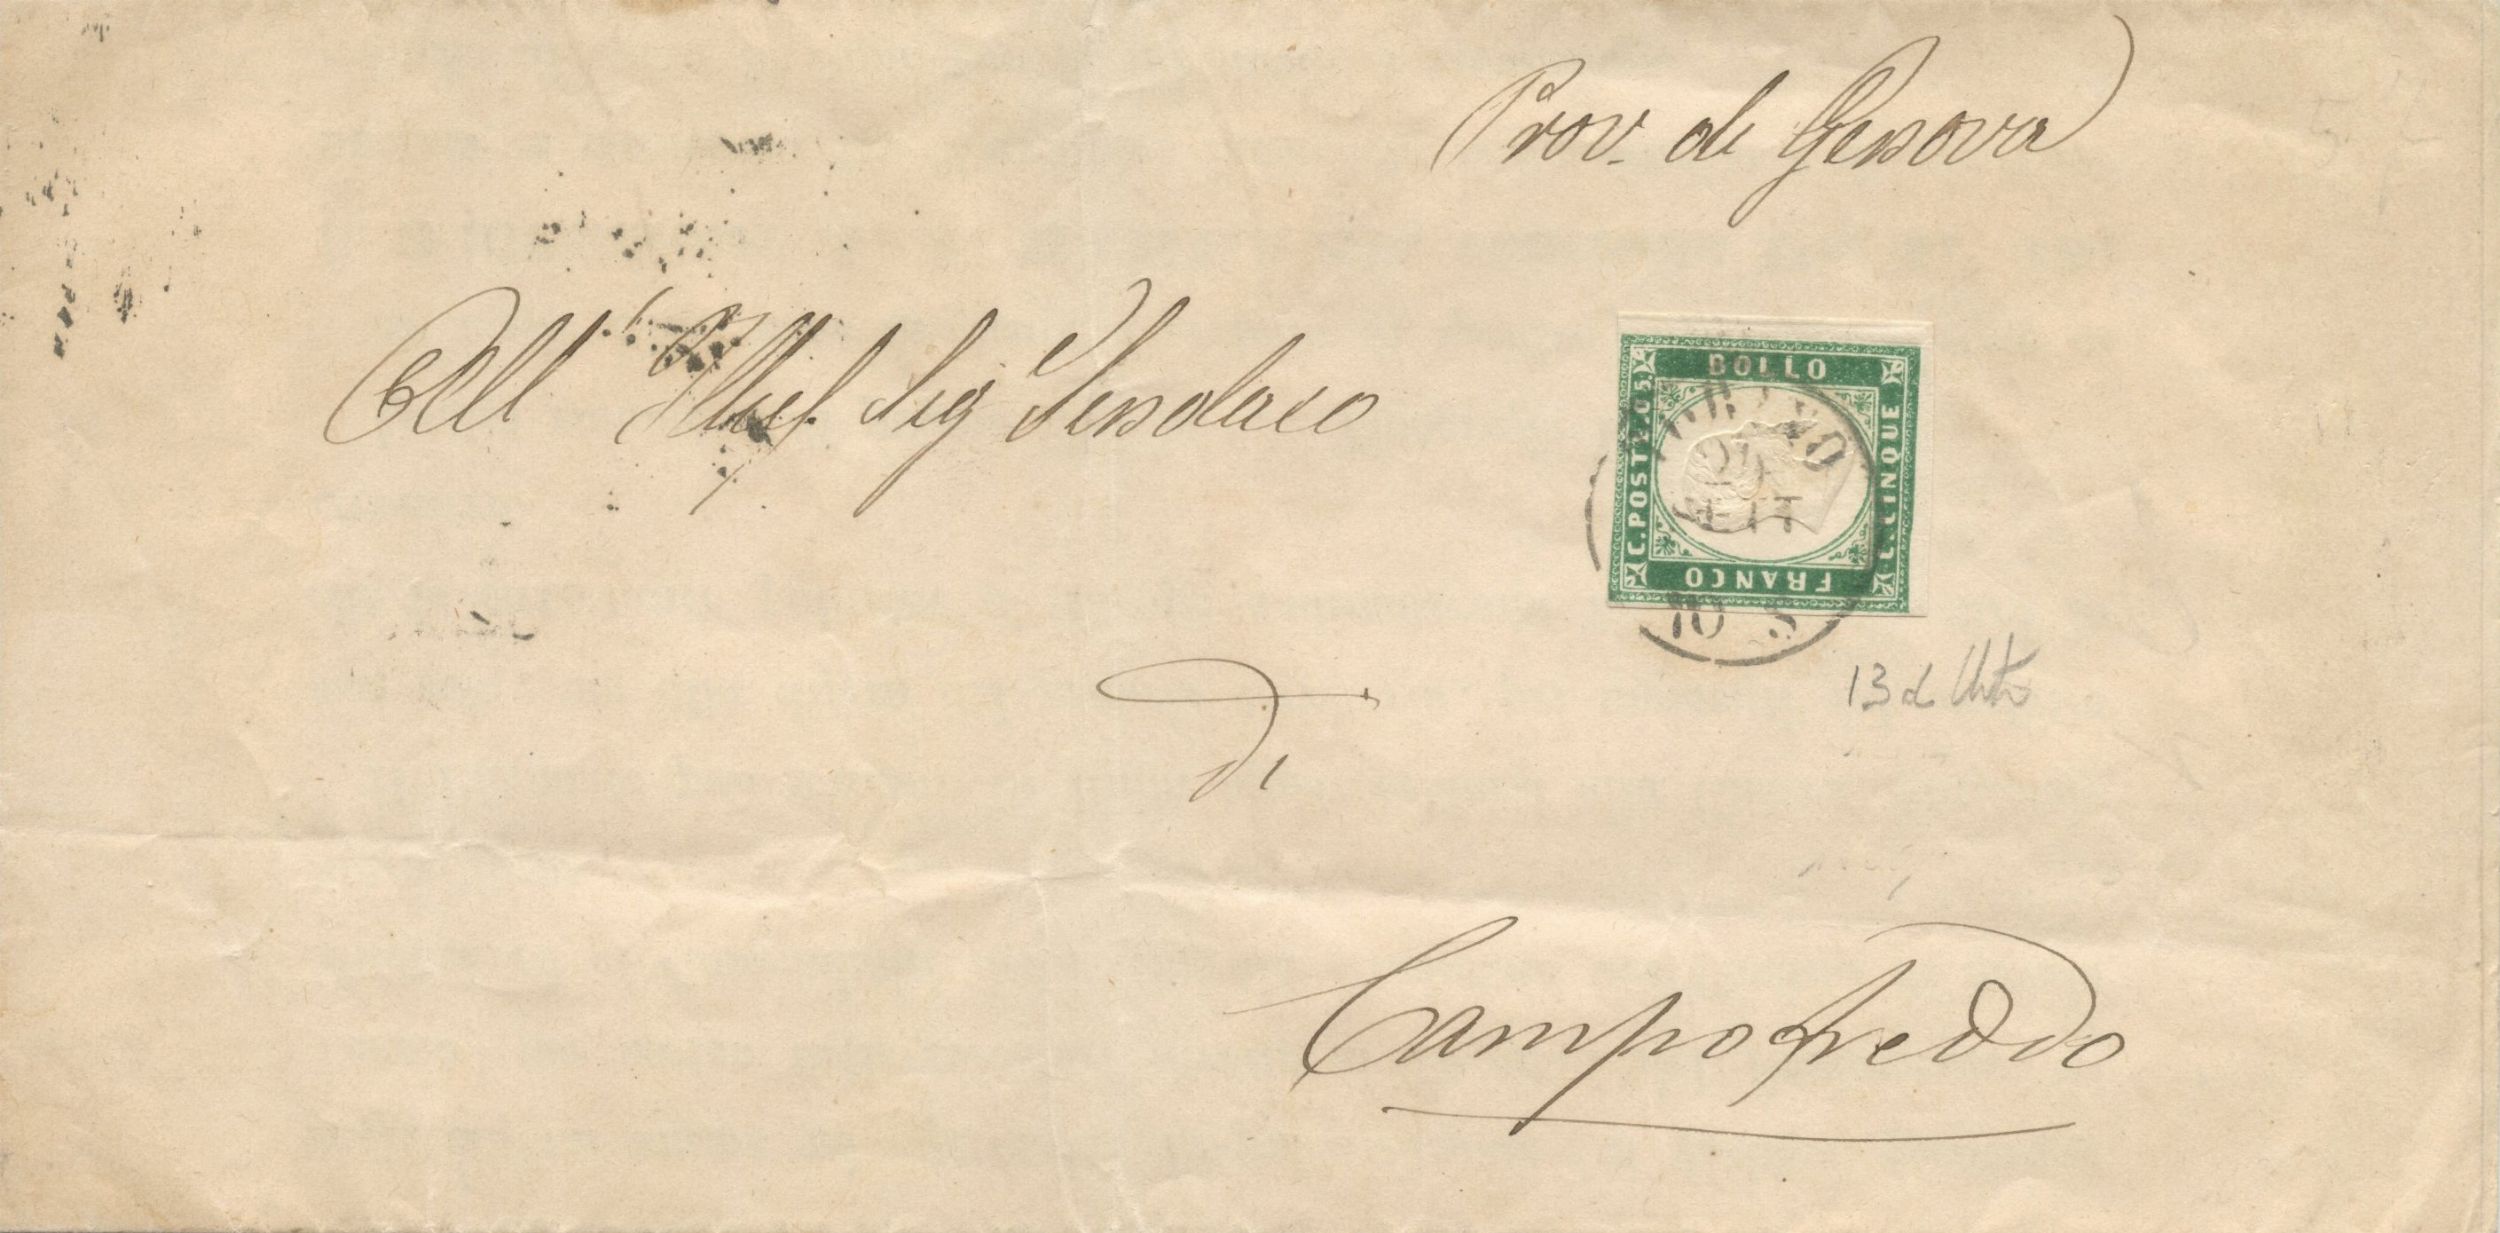 Prov. di Genova
All' Illmo Sig Sindaco
di
Campofreddo
BOLLO
C. POSTE. 05.
C. CINQUE
FRANCO
SETT
10 S
13 d